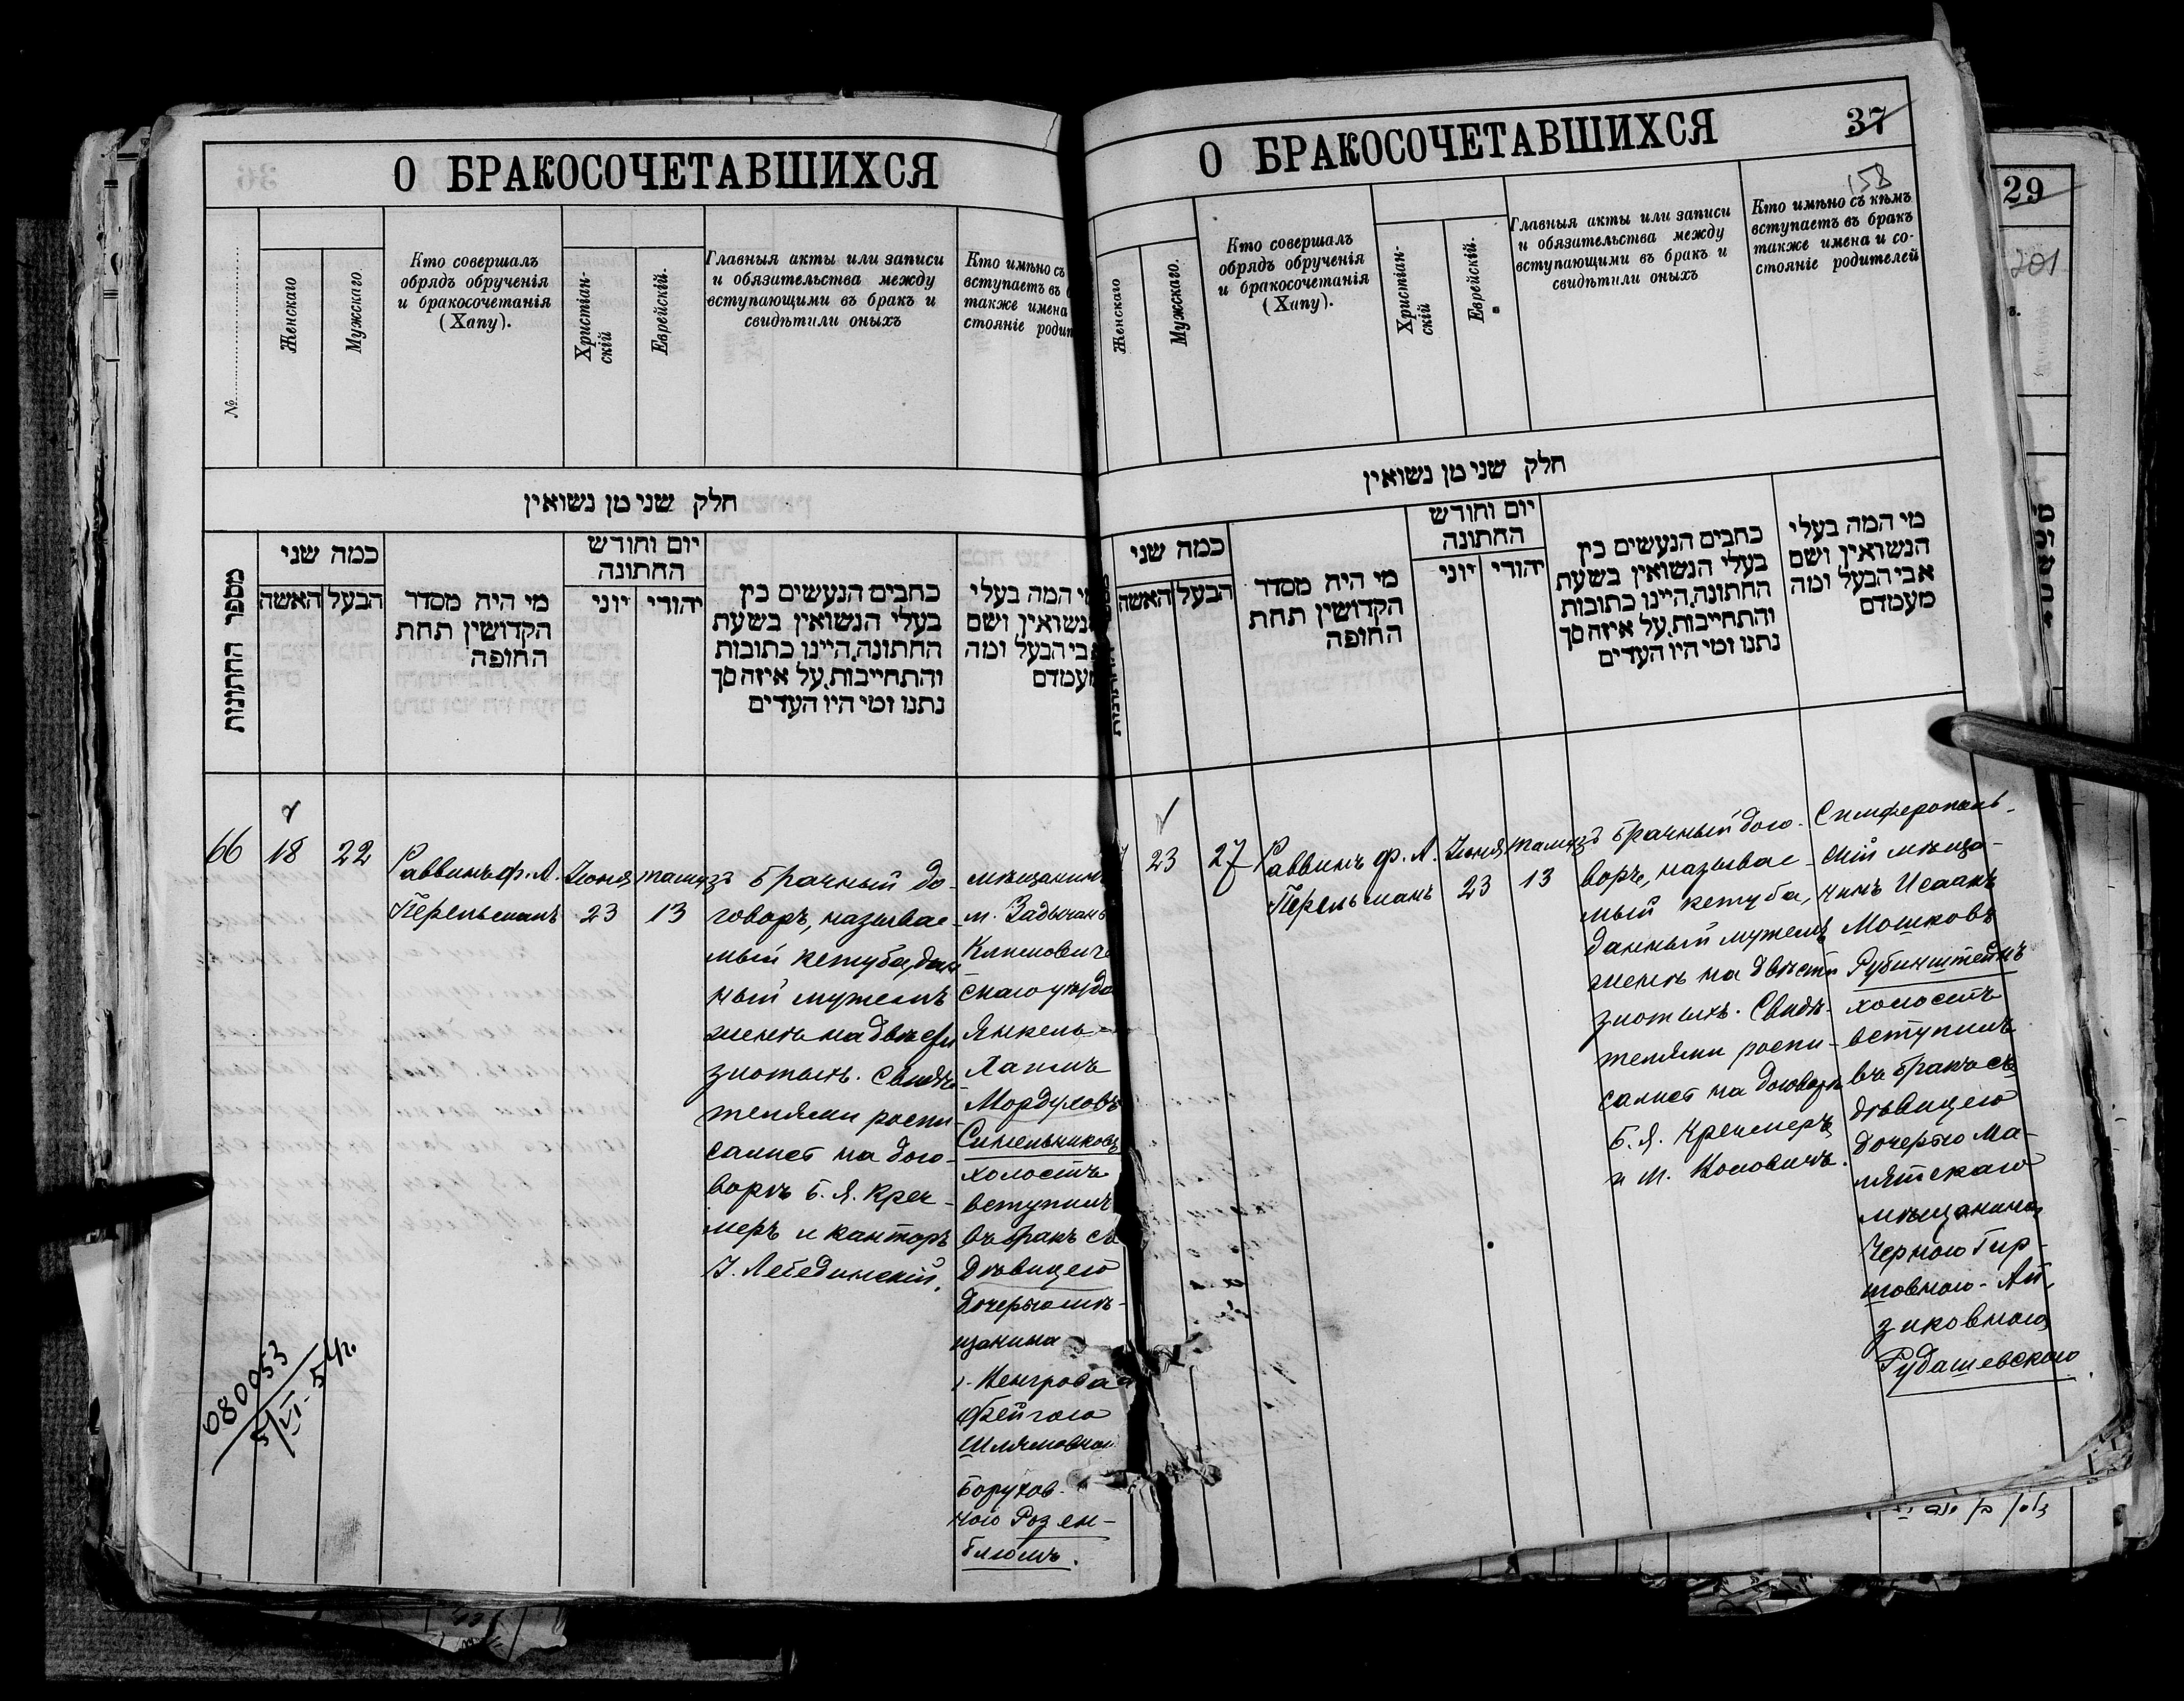 О БРАКОСОЧЕТАВШИХСЯ
№
Женскаго
Мужскаго
Кто совершалъ
обрядъ обрученія
и бракосочетанія
(Хупу).
Христіан-
скій
Еврейскій.
Главныя акты или записи
и обязательства между
вступающими въ бракъ и
свидѣтили оныхъ
Кто имѣно съ
вступаетъ въ
также имена
стояніе родит
חלק שני מן נשואין
מספר החתונות
כמה שני
האשה
הבעל
מי היה מסדר
הקדושין תחת
החופה
יום וחודש
החתונה
יוני
יהודי
כתבים הנעשים בין
בעלי הנשואין בשעת
החתונה,היינו כתובות
והתחייבות,על איזה סך
נתנו ומי היו העדים
מי המה בעלי
הנשואין ושם
אבי הבעל ומה
מעמדם
66
18
22
Раввинъ Ф. А.
Перельманъ
Іюня
23
тамузъ
13
Брачный до-
говоръ, называе-
мый кетуба, дан
ный мужемъ
женѣ на двѣсти
злотыхъ. Свидѣ-
телями распи-
сались на дого-
ворѣ Б. Я. Крем-
меръ и канторъ
Лебединскій.
мѣщанинъ
м.
Климович
скаго уѣзда
Янкель-
Хаимъ
Мордуховъ
Синельниковъ
холостъ
вступилъ
въ бракъ съ
дѣвицею
дочерью мѣ-
щанина
Венгрова
Фейгою
Шлямовною
Борухов-
ною Розен-
блюмъ.
080053
5/VI-54г.
О БРАКОСОЧЕТАВШИХСЯ
37
158
Женскаго
Мужскаго.
Кто совершалъ
обрядъ обрученія
и бракосочетанія
(Хупу).
Христіан-
скій
Еврейскій.
Главныя акты или записи
и обязательства между
вступающими въ бракъ и
свидѣтили оныхъ
Кто имѣно съ кѣмъ
вступаетъ въ бракъ
также имена и со-
стояніе родителей
חלק שני מן נשואין
כמה שני
האשה
הבעל
מי היה מסדר
הקדושין תחת
החופה
יום וחודש
החתונה
יוני
יהודי
כתבים הנעשים בין
בעלי הנשואין בשעת
החתונה,היינו כתובות
והתחייבות,על איזה סך
נתנו ומי היו העדים
מי המה בעלי
הנשואין ושם
אבי הבעל ומה
מעמדם
23
27
Раввинъ Ф. А.
Перельманъ
Іюня
23
тамузъ
13
Брачный дого-
воръ, называе-
мый кетуба,
данный мужемъ
женѣ на двѣсти
злотыхъ. Свидѣ-
телями распи-
сались на договорѣ
Б. Я. Креммеръ
и М.
Симферополь-
скій мѣща-
нинъ Исаакъ
Мошковъ
Рубинштейнъ
холостъ
вступилъ
въ бракъ съ
дѣвицею
дочерью Ма-
лятскаго
мѣщанина
Черною Гир-
шовною-Ай-
зиковною
Рудашевскою.
29
201